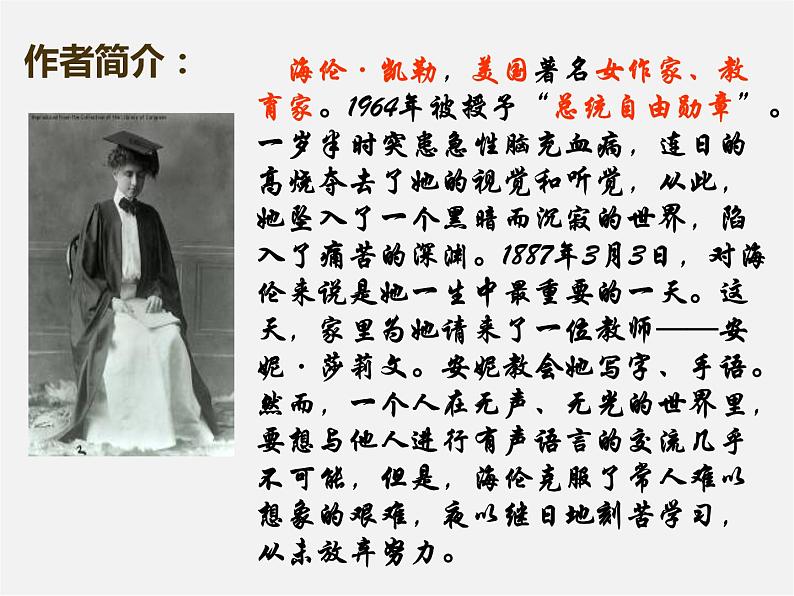 作者简介：
Reproduced from the Collection of the Library of Congress
2
海伦·凯勒，美国著名女作家、教
育家。1964年被授予“总统自由勋章”。
一岁半时突患急性脑充血病，连日的
高烧夺去了她的视觉和听觉，从此，
她坠入了一个黑暗而沉寂的世界，陷
入了痛苦的深渊。1887年3月3日，对海
伦来说是她一生中最重要的一天。这
天，家里为她请来了一位教师——安
妮·莎莉文。安妮教会她写字、手语。
然而，一个人在无声、无光的世界里，
要想与他人进行有声语言的交流几乎
不可能，但是，海伦克服了常人难以
想象的艰难，夜以继日地刻苦学习，
从未放弃努力。